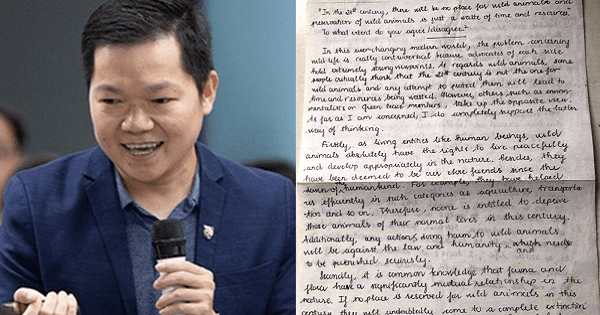 "In the 21st century, there will be no place for wild animals and
preservation of wild animals is just a waste of time and resources"
To what extent do you agree/disagree?
In this ever-changing modern world, the problem concerning
wild life is really controversial because advocates of each side
hold extremely strong viewpoints. As regards wild animals, some
people actually think that the 21st century is not the one for
wild animals and any attempt to protect them will lead to
time and resources being wasted. However, others, such as environ-
mentalists or Green Peace members, take up the opposite view.
As far as I am concerned, I do completely support the latter
way of thinking.
Firstly, as living entities like human beings, wild
animals absolutely have the rights to live peacefully
and develop appropriately in the nature. Besides, they
have been deemed to be our close friends since the
dawn of the humankind. For example, they have helped
us efficiently in such categories as agriculture, transporta-
tion and so on. Therefore, no one is entitled to deprive
those animals of their normal lives in this century.
Additionally, any actions doing harm to wild animals
will be against the law and humanity, which needs
to be punished seriously.
Secondly, it is common knowledge that fauna and
flora have a significantly mutual relationship in the
nature. If no place is reserved for wild animals in this
century, they will undoubtedly come to a complete extinction